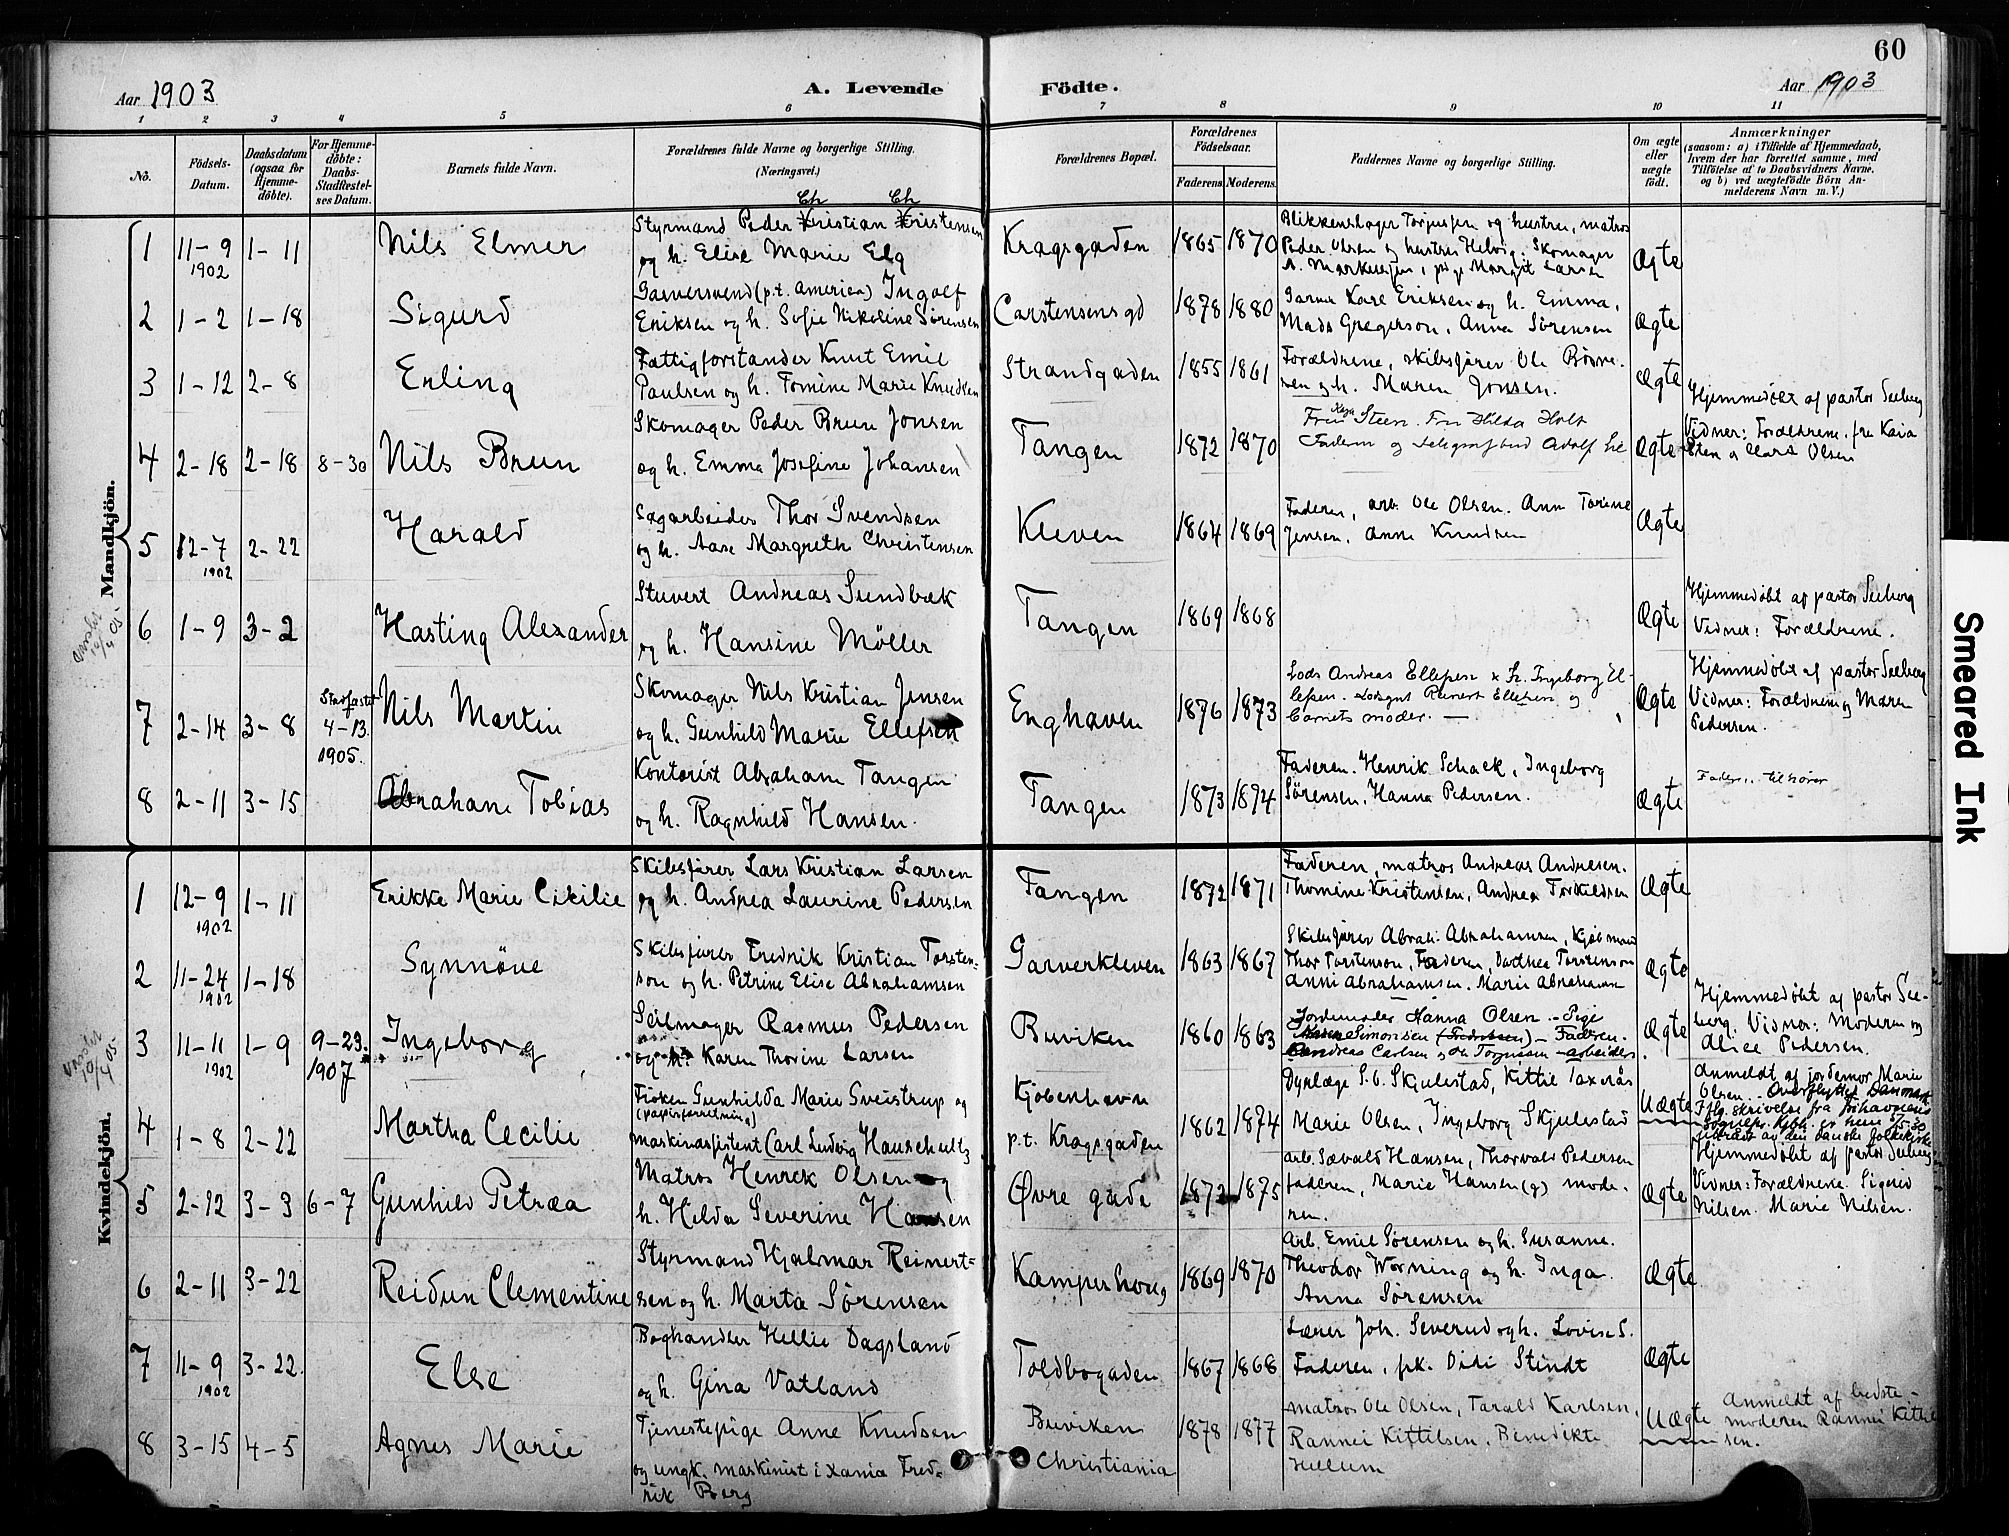 60
Aar 1903
A. Levende Födte.
Aar 1903
1 2 3 4 5 6 7 8 9 10 11
No.
Födsels-Datum.
Daabsdatum (ogsaa for Hjemme-döbte).
For Hjemme-döbte: Daabs-Stadfæstel-ses Datum.
Barnets fulde Navn.
Forældrenes fulde Navne og borgerlige Stilling. (Næringsvei.)
Forældrenes Bopæl.
Forældrenes Födselsaar.
Faderens. Moderens.
Faddernes Navne og borgerlige Stilling.
Om ægte eller uægte födt.
Anmærkninger (saasom: a) i Tilfælde af Hjemmedaab, hvem der har forrettet samme, med Tilföielse af to Daabsvidners Navne, og b) ved uægtefödte Börn An-melderens Navn m. V.)
Mandkjön.
Ch Ch
1 11-9 1902 1-11 Nils Elmer
Styrmand Peder Kristian Kristensen
og h. Elise Marie Elg
Kragsgaden 1865 1870
Blikkenslager Torjussen og hustru, matros
Peder Olsen og hustru Helvig. Skomager
A. Markussen, pige Margit Larsen
Ægte
2 1-2 1-18 Sigurd
Garversvend (p.t. America) Ingolf
Eriksen og h. Sofie Nikoline Sørensen
Carstensensgd 1878 1880
Garver Karl Eriksen og h. Emma,
Mads Gregerson, Anna Sørensen
Ægte
3 1-12 2-8 Erling
Fattigforstander Knut Emil
Paulsen og h. Tomine Marie Knudsen
Strandgaden 1855 1861
Forældrene, skibsfører Ole
og h. Maren Jonsen.
Ægte
4 2-18 2-18 8-30 Nils Brun
Skomager Peder Brun Jonsen
og h. Emma Josefine Johansen
Tangen 1872 1870
Kaja
Fru Steen. Fru Hilda Holt
Faderen og telegrafbud Adolf
Ægte
Hjemmedøbt af pastor Seeberg
Vidner: Forældrene, fru Kaia
Sten og Olsen
5 12-7 1902 2-22 Harald
Sagarbeider Thor Svendsen
og h. Aase Margrethe Christensen
Kleven 1864 1869
Faderen, arb. Ole Olsen. Ann Torine
Jensen, Anne Knudsen
Ægte
6 1-9 3-2 Hasting Alexander
Stuvert Andreas Sundbæk
og h. Hansine Møller
Tangen 1869 1868
Ægte
Hjemmedøbt af pastor Seeberg
Vidner: Forældrene.
7 2-14 3-8 Stadfæstet 4-13. 1905. Nils Martin
Skomager Nils Kristian Jensen
og h. Gunhild Marie Ellefsen
Enghaven 1876 1873
Lods Andreas Ellefsen & fr. Ingeborg El-
lefsen. Reinert Ellefsen og
barnets moder.
Ægte
Hjemmedøbt af pastor Seeberg
Vidner: Forældrene og Maren
Pedersen.
8 2-11 3-15 Abraham Tobias
Kontorist Abraham Tangen
og h. Ragnhild Hansen.
Tangen 1873 1874
Faderen. Henrik Schack, Ingeborg
Sørensen, Hanna Pedersen.
Ægte
tilhører
Kvindekjön.
1 12-9 1902 1-11 Erikke Marie Cicilie
Skibsfører Lars Kristian Larsen
og h. Andrea Laurine Pedersen
Tangen 1872 1871
Faderen, matros Andreas Andresen.
Thomine Kristensen, Andrea Torkildsen
Ægte
2 11-24 1902 1-18 Synnöve
Skibsfører Fredrik Kristian Torsten-
son og h. Petrine Elise Abrahamsen
Garverkleven 1863 1867
Skibsfører Abrah. Abrahamsen, Kjøbmand
Thor Torstenson, Faderen, Dorthea Torstenson
Anni Abrahamsen. Marie Abrahamsen
Ægte
3 11-11 1902 1-9 9-23. 1907 Ingeborg
Seilmager Rasmus Pedersen
og h. Karen Thorine Larsen
Buviken 1860 1863
Jordemoder Hanna Olsen - Pige
Simonsen (Fredriksen) - Faderen.
Andreas Carlsen og Ole Torjussen - arbeidere
Ægte
Hjemmedøbt af pastor See-
berg. Vidner: Moderen og
Alice Pedersen.
4 1-8 2-22 Martha Cecilie
Frøken Gunhilda Marie Sveistrup og
(papirforretning)
maskinassistent Carl Ludvig Hauschultz
Kjøbenhavn
p.t. Kragsgaden
1862 1874
Dyrlæge S. O. Skjulestad, Kittil Taxnæs
Marie Olsen, Ingeborg Skjulestad
Uægte
Anmeldt af jordemor Marie
Olsen. - Overflyttet Danmark
Iflg. skrivelse fra
sognepr. Kjbh. er hun 5/5-30
av den danske folkekirke
5 2-12 3-3 6-7 Gunhild Petræa
Matros Henrek Olsen og
h. Hilda Severine Hansen
Øvre gade 1872 1875
arb. Sævald Hansen, Thorvald Pedersen
faderen, Marie Hansen (g) mode-
ren.
Ægte
Hjemmedøbt af pastor Seeberg
Vidner: Forældrene. Sigrid
Nilsen. Marie Nilsen.
6 2-11 3-22 Reidun Clementine
Styrmand Hjalmar Reinert-
sen og h. Marta Sørensen
Kamperhoug 1869 1870
Arb. Emil Sørensen og h. Susanne.
Theodor Worning og h. Inga.
Anna Sørensen
Ægte
7 11-9 1902 3-22. Else
Boghandler Hellie Dagsland
og h. Gina Vatland
Toldbogaden 1867 1868
Lærer Joh. Severud og h. Lovise S.
Faderen, frk. Didi Stindt
Ægte
8 3-15 4-5 Agnes Marie
Tjenestepige Anne Knudsen
og ungk. maskinist i Xania Fred-
rik Berg
Buviken
Christiania
1878 1877
Matros Ole Olsen, Tarald Karlsen,
Rannei Kittilsen, Benedikte
Hellum
Uægte
Anmeldt af bedste-
moderen Rannei Kittil-
sen.
Smeared Ink